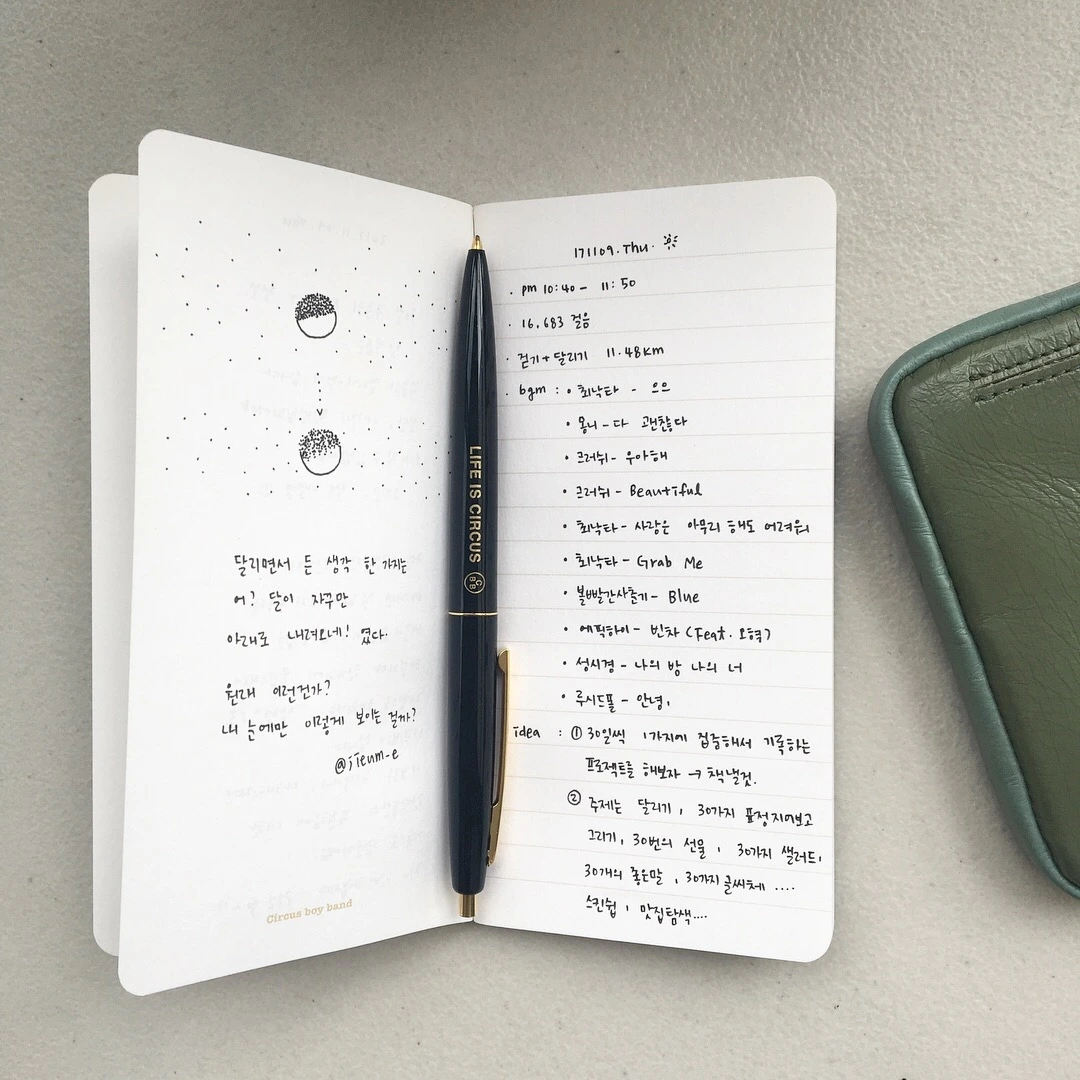 달리면서 든 생각 한 가지는
어? 달이 자꾸만
아래로 내려오네! 였다.
원래 이런건가?
내 눈에만 이렇게 보이는 걸까?
@jieum_e
Circus boy band
LIFE IS CIRCUS
CBB
171109. Thu.
· pm 10:40 - 11:50
· 16,683 걸음
· 걷기+달리기 11.48km
· bgm : • 최낙타 - 으으
• 옹니 - 다 괜찮다
• 크러쉬 - 우아해
• 크러쉬 - Beautiful
• 최낙타 - 사랑은 아무리 해도 어려워
• 최낙타 - Grab Me
• 볼빨간사춘기 - Blue
• 에픽하이 - 빈차 (Feat. 오혁)
• 성시경 - 나의 밤 나의 너
• 루시드폴 - 안녕,
idea : ① 30일씩 1가지에 집중해서 기록하는
프로젝트를 해보자 → 책 낼것.
② 주제는 달리기, 30가지 표정지어보고
그리기, 30번의 선물, 30가지 샐러드,
30개의 좋은말, 30가지 글씨체 ....
스킨쉽, 맛집탐색....